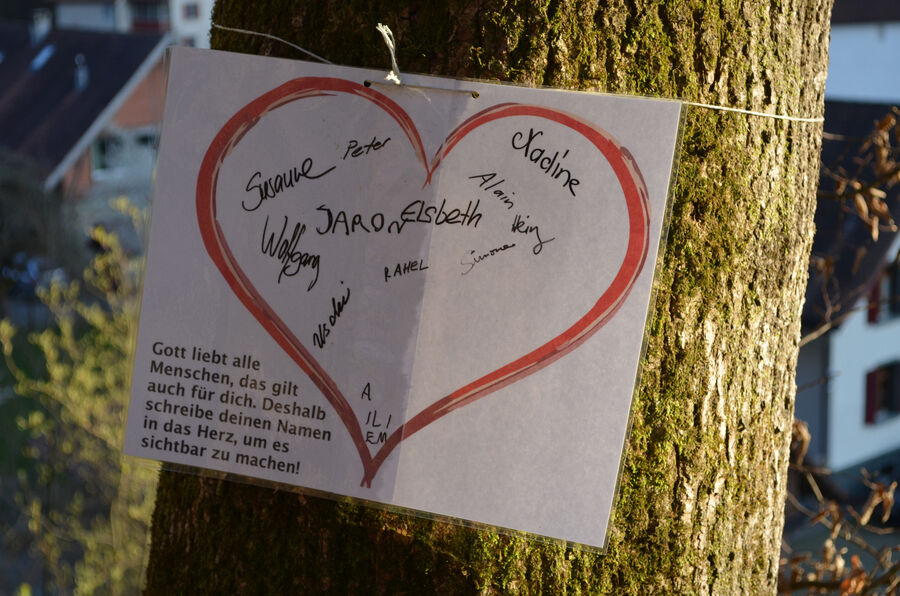 Susanne
Peter
Nadine
Alain
JARON
Elsbeth
Heinz
Wolfgang
RAHEL
Simone
A
ILI
EM
Gott liebt alle
Menschen, das gilt
auch für dich. Deshalb
schreibe deinen Namen
in das Herz, um es
sichtbar zu machen!